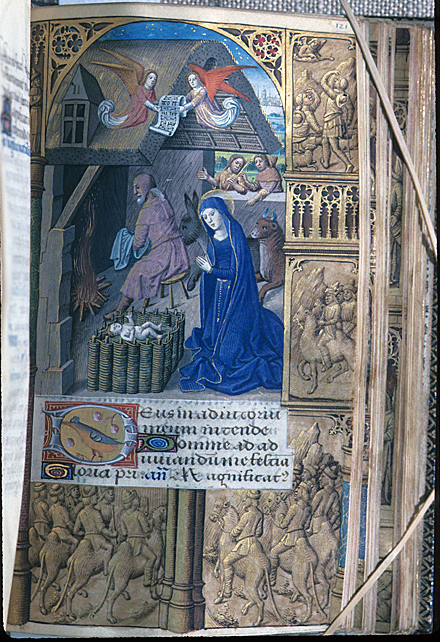 Deus in adiutoriu
meum intende
Domine ad ad
iuuandum me festia
Gloria pri. añ agnificat